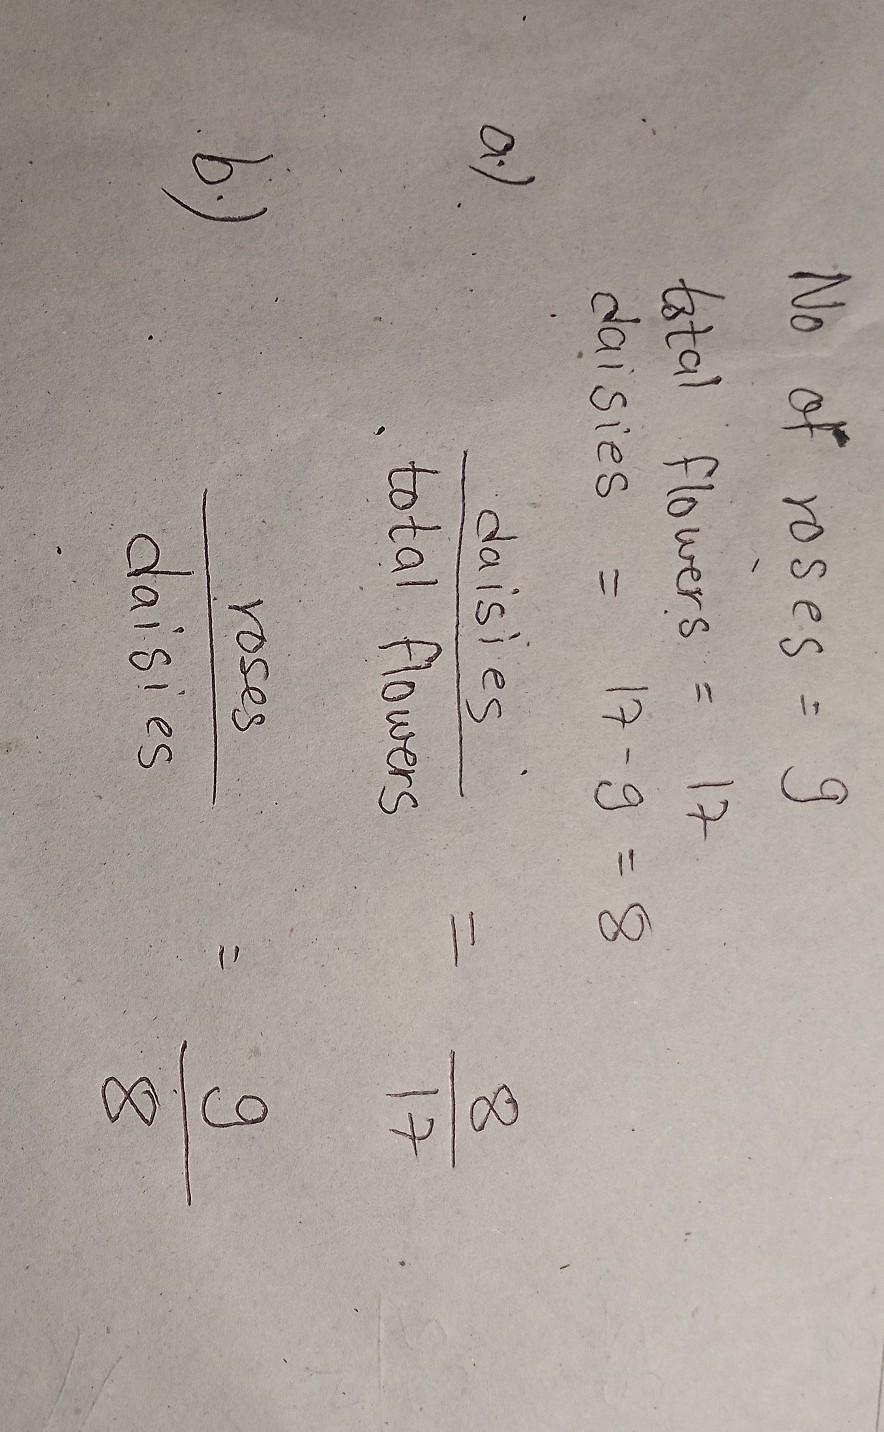 No of roses = 9
total flowers = 17
daisies = 17-9 = 8
a.) daisies/total flowers = 8/17
b.) roses/daisies = 9/8